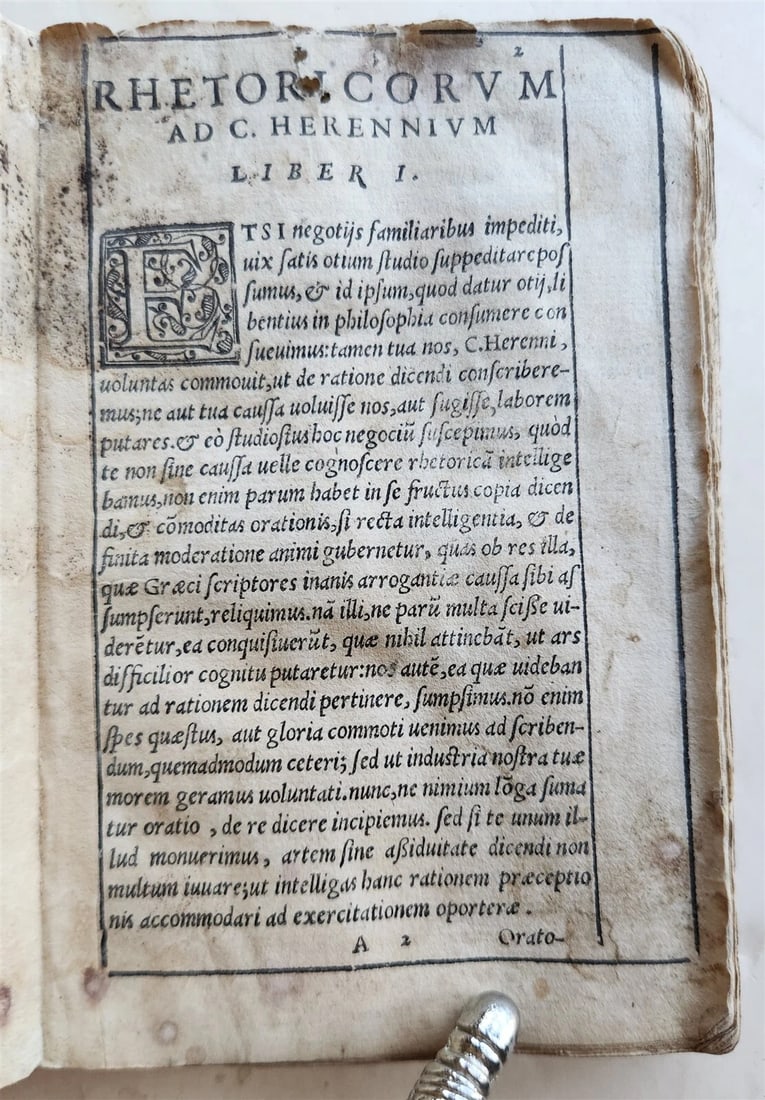 2
RHETORICORVM
AD C. HERENNIVM
LIBER I.
ETSI negotijs familiaribus impediti,
uix satis otium studio suppeditare pos
sumus, & id ipsum, quod datur otij, li
bentius in philosophia consumere con
sueuimus: tamen tua nos, C. Herenni,
uoluntas commouit, ut de ratione dicendi conscribere-
mus; ne aut tua caussa uoluisse nos, aut fugisse laborem
putares. & eò studiosius hoc negociũ suscepimus, quòd
te non sine caussa uelle cognoscere rhetoricã intellige
bamus, non enim parum habet in se fructus copia dicen
di, & cõmoditas orationis, si recta intelligentia, & de
finita moderatione animi gubernetur, quas ob res illa,
quæ Græci scriptores inanis arrogantiæ caussa sibi as
sumpserunt, reliquimus. nã illi, ne parũ multa scisse ui-
derẽtur, ea conquisiuerũt, quæ nihil attinebãt, ut ars
difficilior cognitu putaretur: nos autẽ, ea quæ uideban
tur ad rationem dicendi pertinere, sumpsimus. nõ enim
spes quæstus, aut gloria commoti uenimus ad scriben-
dum, quemadmodum ceteri; sed ut industria nostra tuæ
morem geramus uoluntati. nunc, ne nimium lõga suma
tur oratio , de re dicere incipiemus. sed si te unum il-
lud monuerimus, artem sine assiduitate dicendi non
multum iuuare; ut intelligas hanc rationem præceptio
nis accommodari ad exercitationem oporteræ .
A 2 Orato-